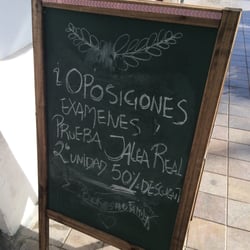 ¿OPOSICIONES
EXAMENES,
PRUEBA JALEA REAL
2ª UNIDAD 50% DESCUENTO